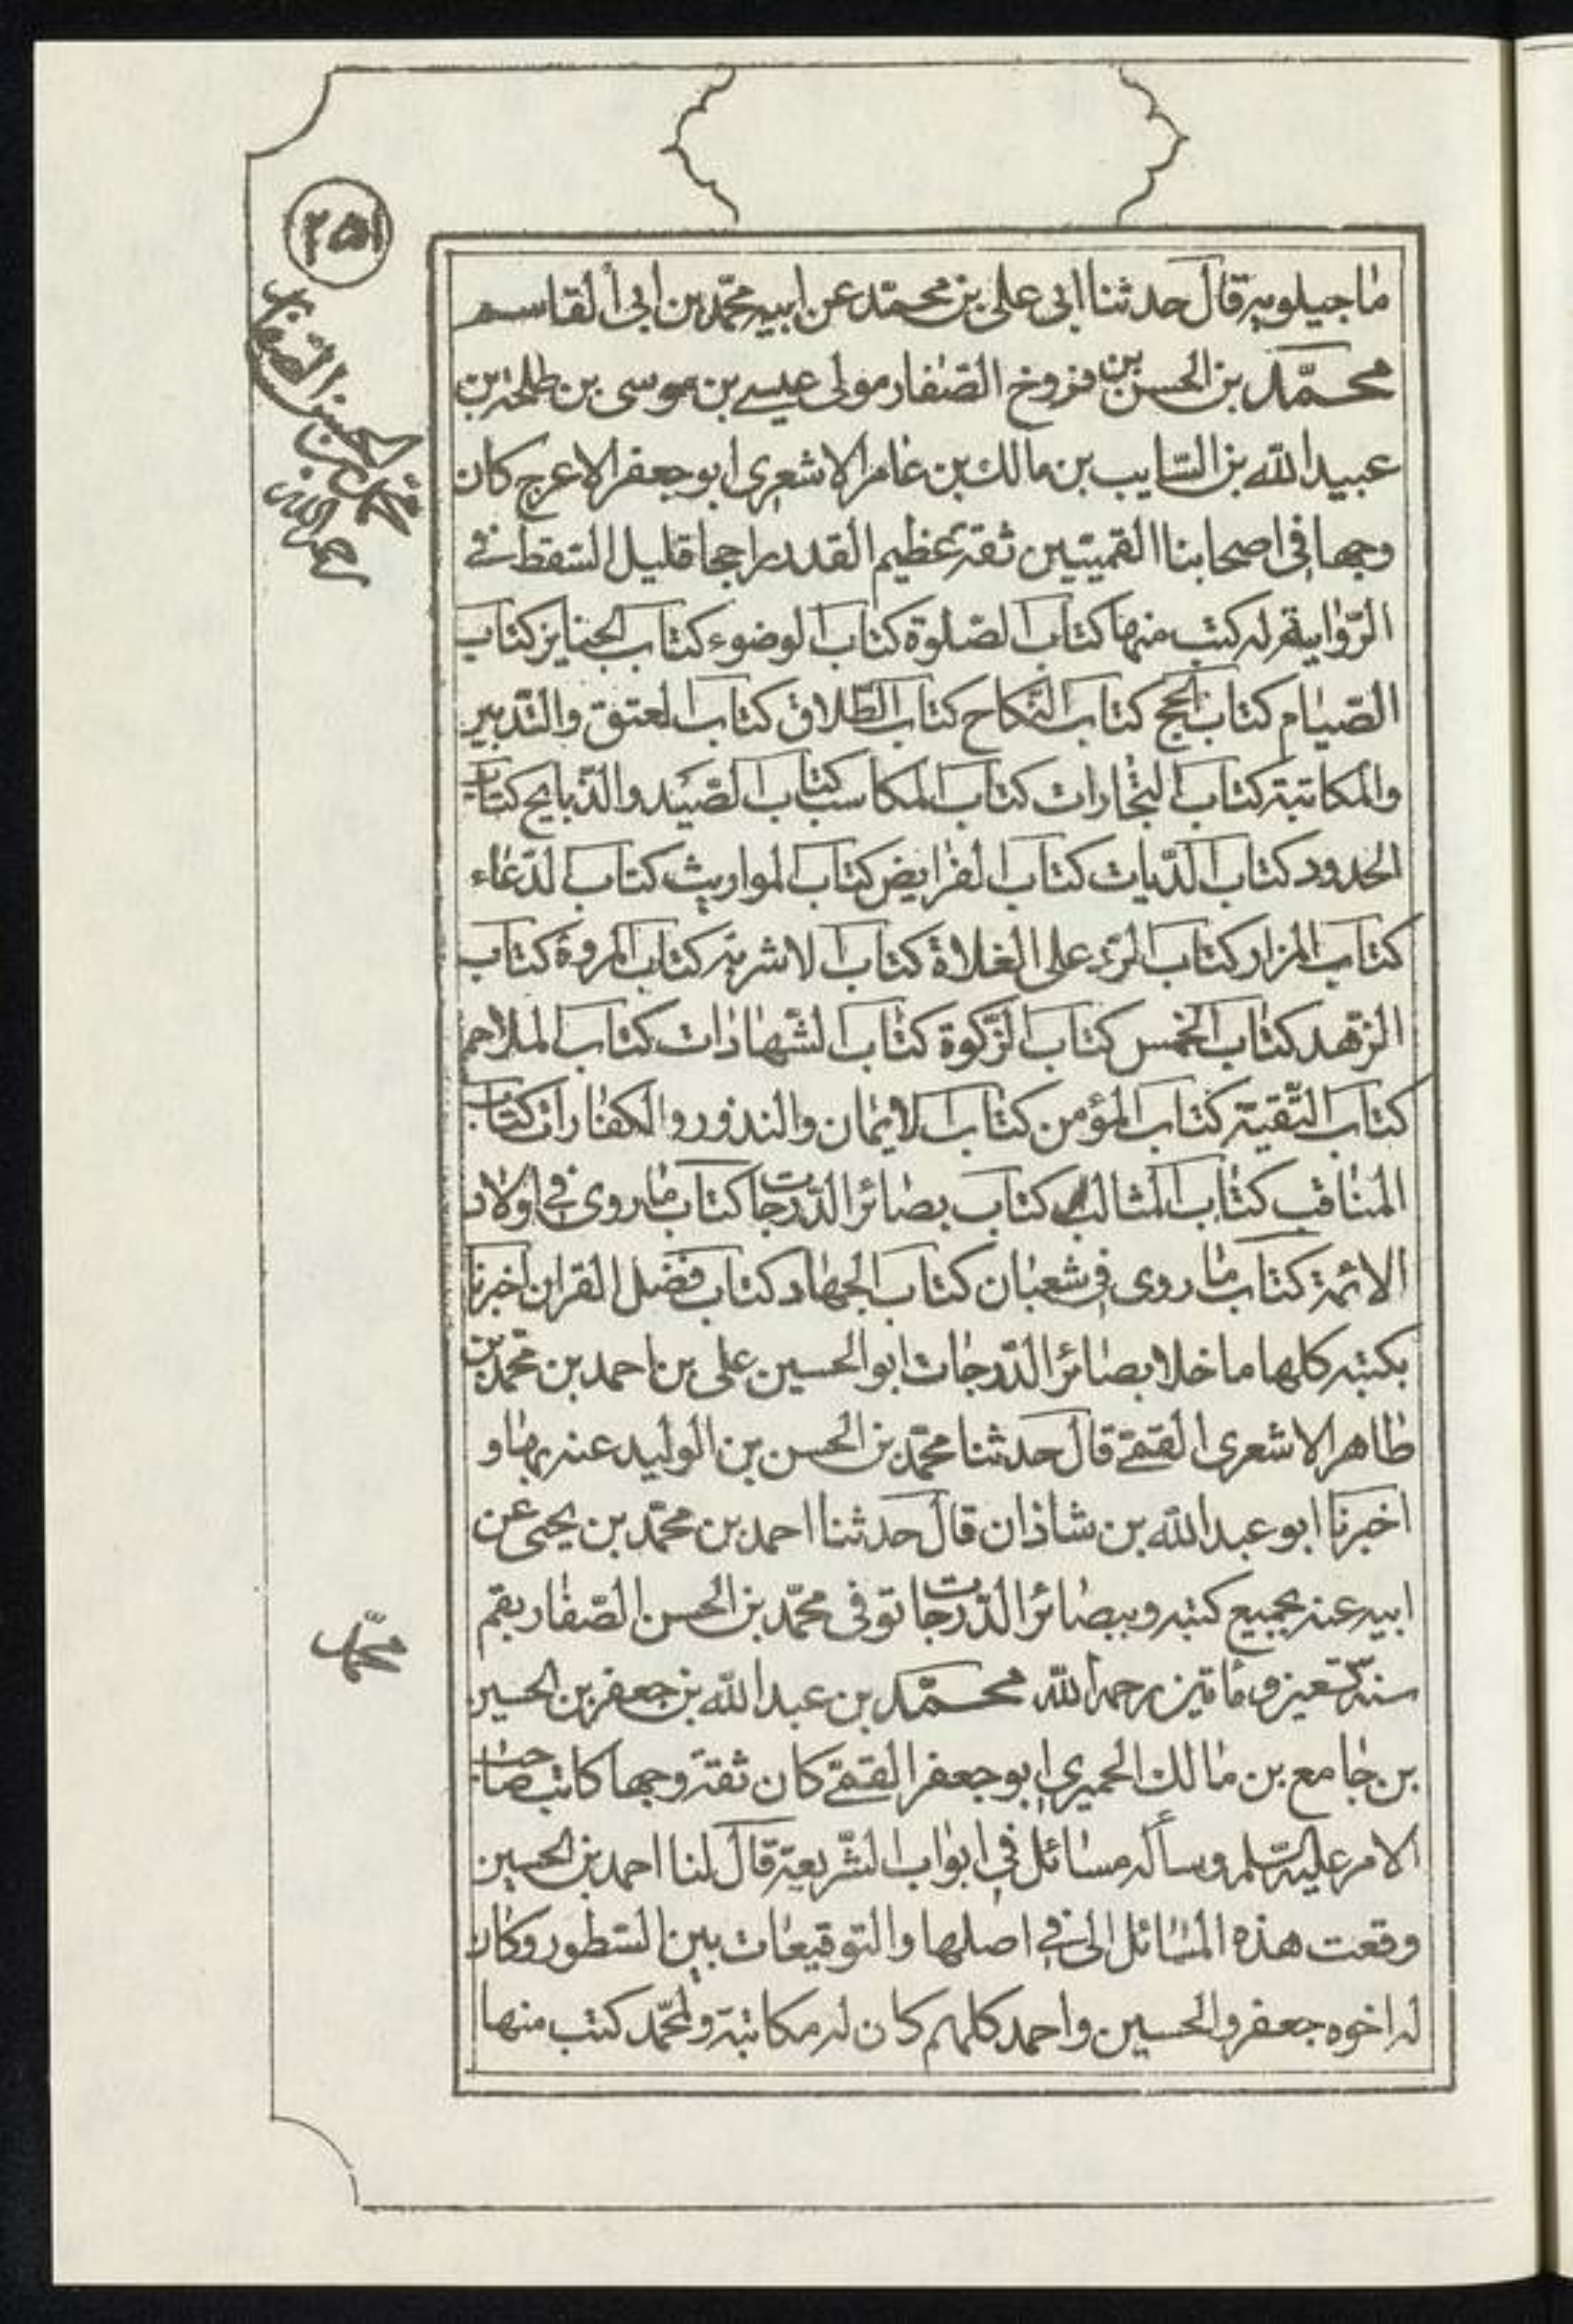 ٢٥١
محمد بن الحسن الصفار
ماجيلويه قال حدثنا ابى على بن محمد عن ابيه محمّد بن ابى القاسم
محمّد بن الحسن بن فروخ الصّفار مولى عيسى بن موسى بن طلحة بن
عبيد الله بن السّايب بن مالك بن عامر الاشعرى ابو جعفر الاعرج كان
وجها فى اصحابنا القميّين ثقة عظيم القدر راجحا قليل السّقط فى
الرّواية له كتب منها كتاب الصّلوة كتاب الوضوء كتاب الجنايز كتاب
الصّيام كتاب الحج كتاب النّكاح كتاب الطّلاق كتاب العتق والتّدبير
والمكاتبة كتاب التّجارات كتاب المكاسب كتاب الصّيد والذّبايح كتاب
الحدود كتاب الدّيات كتاب الفرايض كتاب المواريث كتاب الدّعاء
كتاب المزار كتاب الرّد على الغلاة كتاب الاشربة كتاب المروة كتاب
الزّهد كتاب الخمس كتاب الزّكوة كتاب الشّهادات كتاب الملاحم
كتاب التّقيّة كتاب المؤمن كتاب الايمان والنذور والكفارات كتاب
المناقب كتاب المثالب كتاب بصائر الدّرجات كتاب ما روى فى اولاد
الائمة كتاب ما روى فى شعبان كتاب الجهاد كتاب فضل القران اخبرنا
بكتبه كلها ما خلا بصائر الدّرجات ابو الحسين على بن احمد بن محمّد بن
طاهر الاشعرى القمّى قال حدثنا محمّد بن الحسن بن الوليد عنه بها و
اخبرنا ابو عبد الله بن شاذان قال حدثنا احمد بن محمّد بن يحيى عن
ابيه عنه بجميع كتبه وببصائر الدّرجات توفى محمّد بن الحسن الصّفار بقم
سنة تسعين ومأتين رحمه الله محمّد بن عبد الله بن جعفر بن الحسين
بن جامع بن مالك الحميرى ابو جعفر القمّى كان ثقة وجها كاتب صاحب
الامر عليه السّلم وسأله مسائل فى ابواب الشّريعة قال لنا احمد بن الحسين
وقعت هذه المسائل الى فى اصلها والتوقيعات بين السّطور وكان
له اخوه جعفر والحسين واحمد كلهم كان له مكاتبة ولمحمّد كتب منها
محمّد